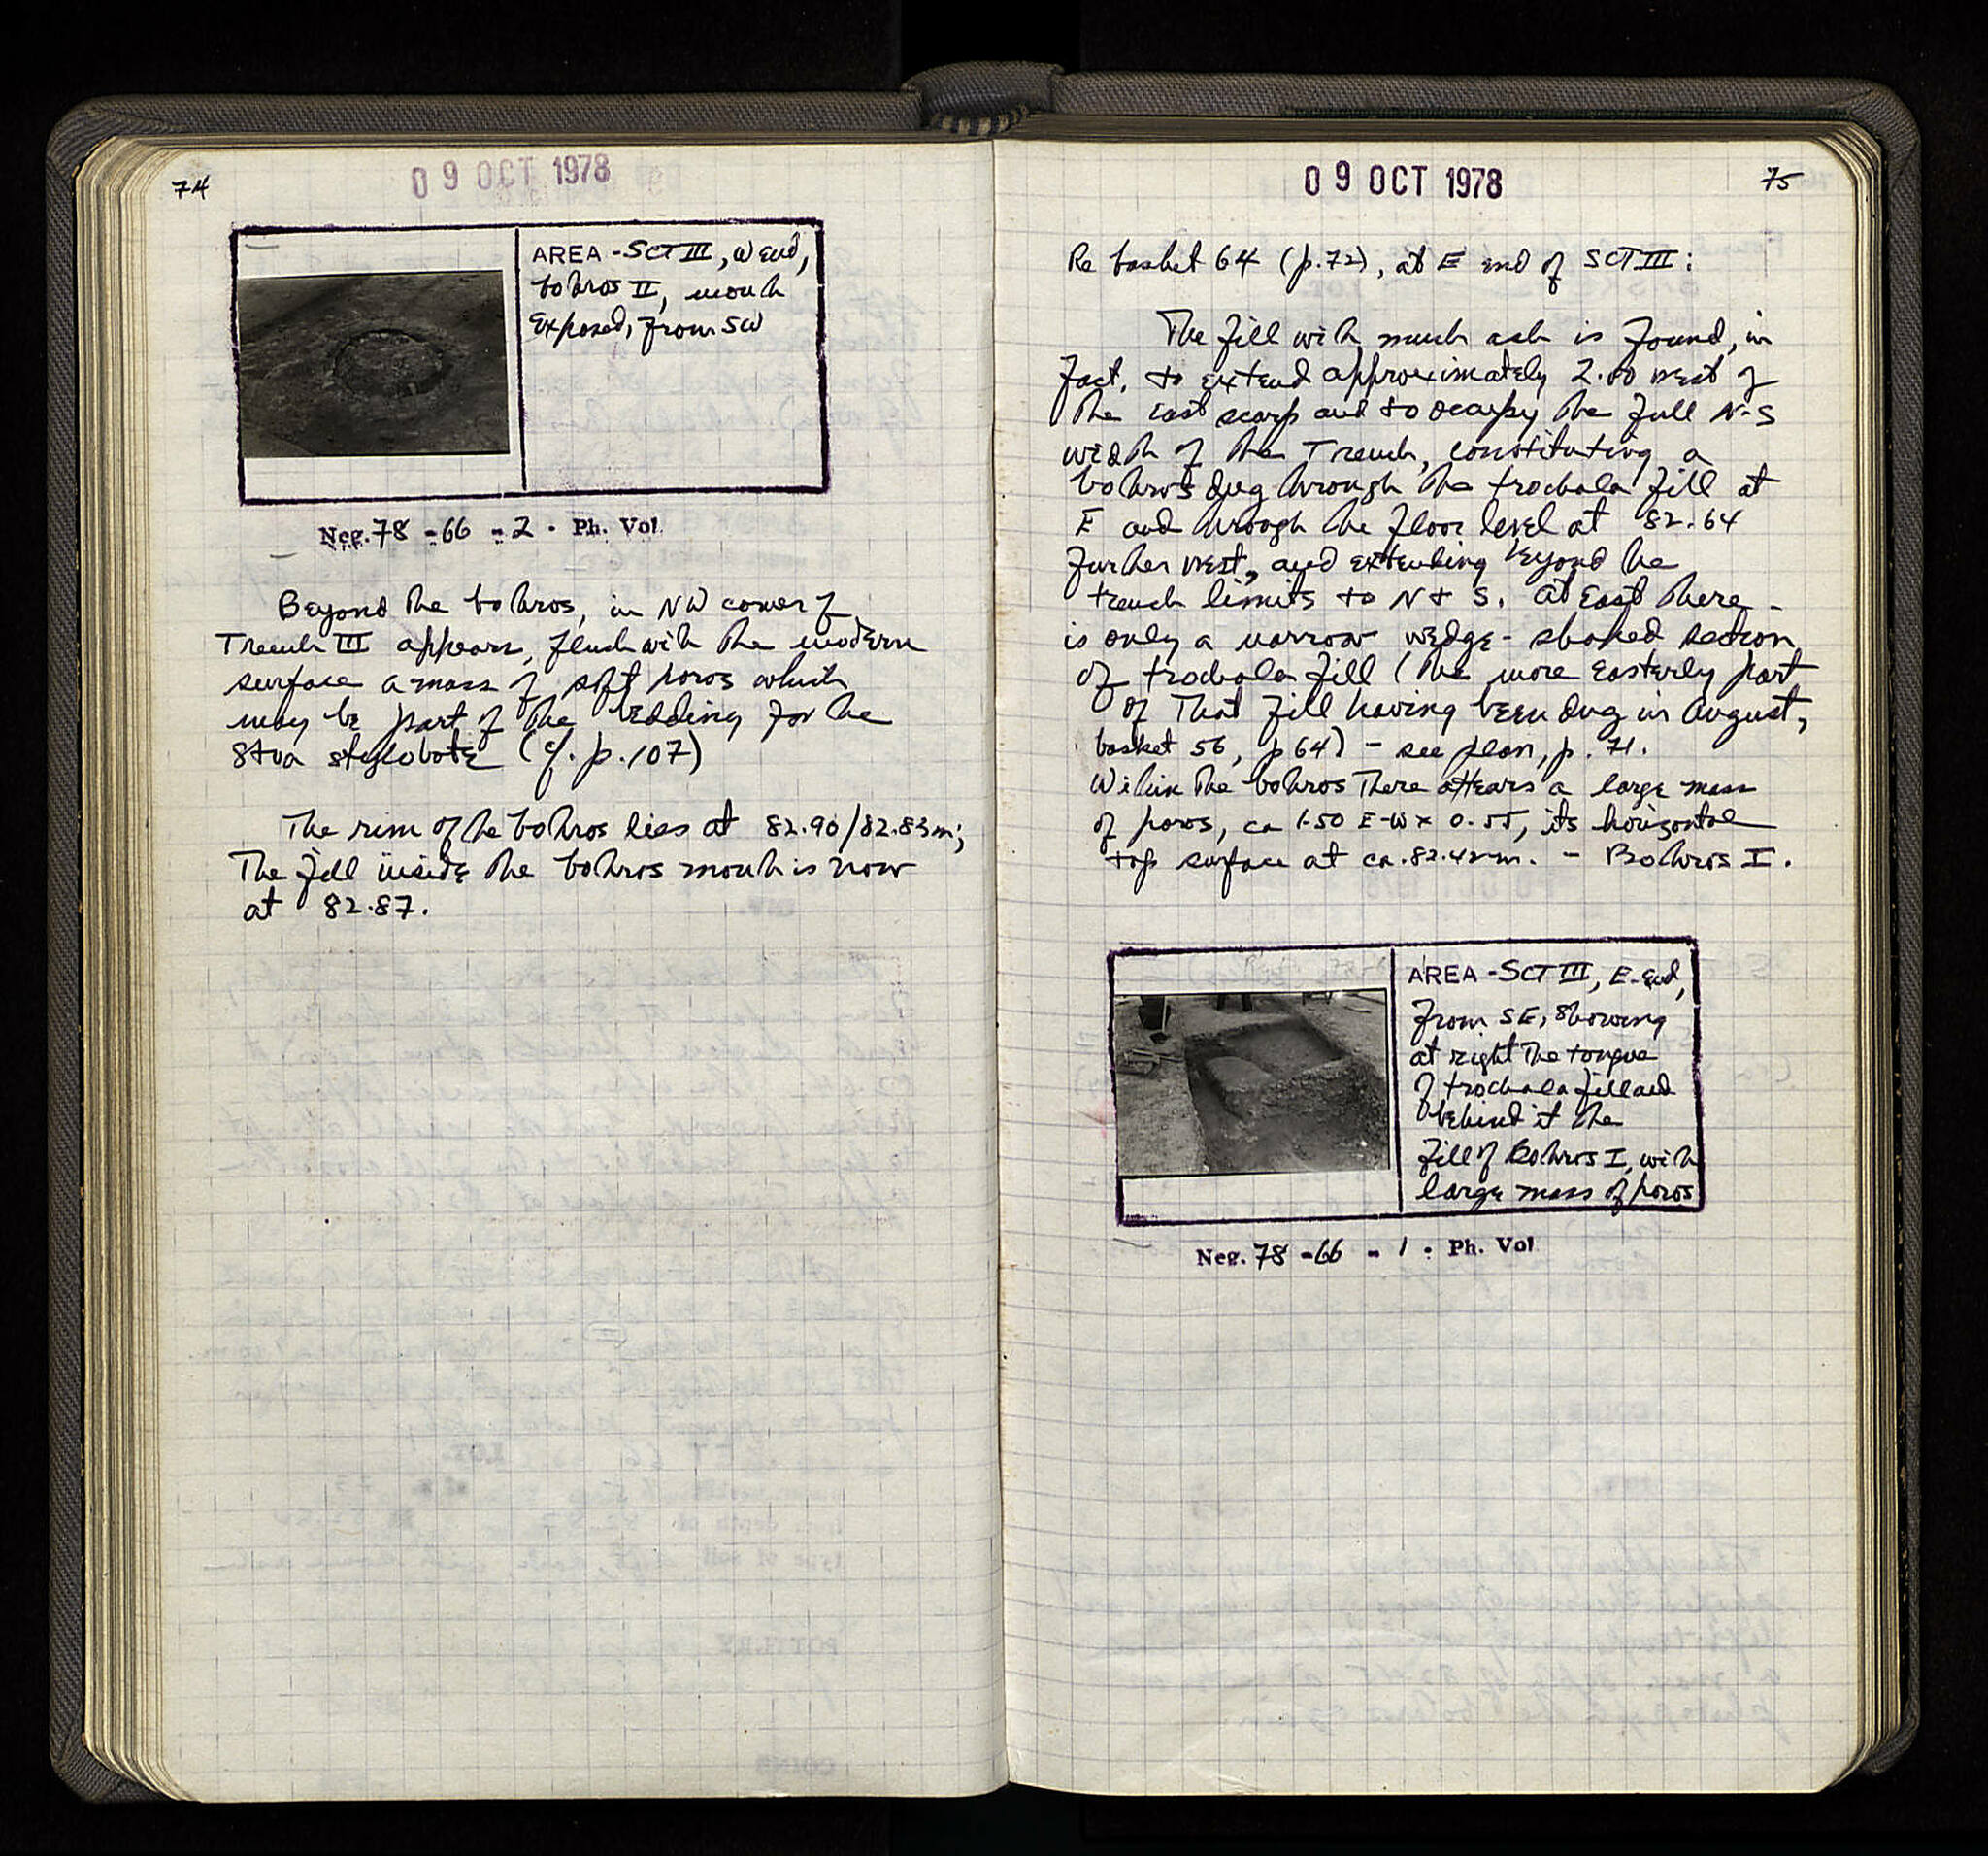 74
09 OCT 1978
AREA - SCT III, W end,
bothros II, mouth
exposed, from SW
Neg. 78 - 66 - 2 . Ph. Vol
Beyond the bothros, in NW corner of
Trench III appears, flush with the modern
surface a mass of soft poros which
may be part of the bedding for the
Stoa stylobate (cf. p. 107)
The rim of the bothros lies at 82.90/82.83m;
The fill inside the bothros mouth is now
at 82.87.
09 OCT 1978
75
Re basket 64 (p. 72), at E end of SCT III:
The fill with much ash is found, in
fact, to extend approximately 2.00 west of
the east scarp and to occupy the full N-S
width of the Trench, constituting a
bothros dug through the trochala fill at
E and through the floor level at 82.64
further west, and extending beyond the
trench limits to N + S. At east there
is only a narrow wedge-shaped section
of trochala fill (the more easterly part
of that fill having been dug in August,
basket 56, p 64) - see plan, p. 71.
Within the bothros there appears a large mass
of poros, ca 1.50 E-W x 0.55, its horizontal
top surface at ca. 82.42m. - Bothros I.
AREA - SCT III, E. end,
from SE, showing
at right the tongue
of trochala fill and
behind it the
fill of Bothros I, with
large mass of poros
Neg. 78 - 66 - 1 . Ph. Vol